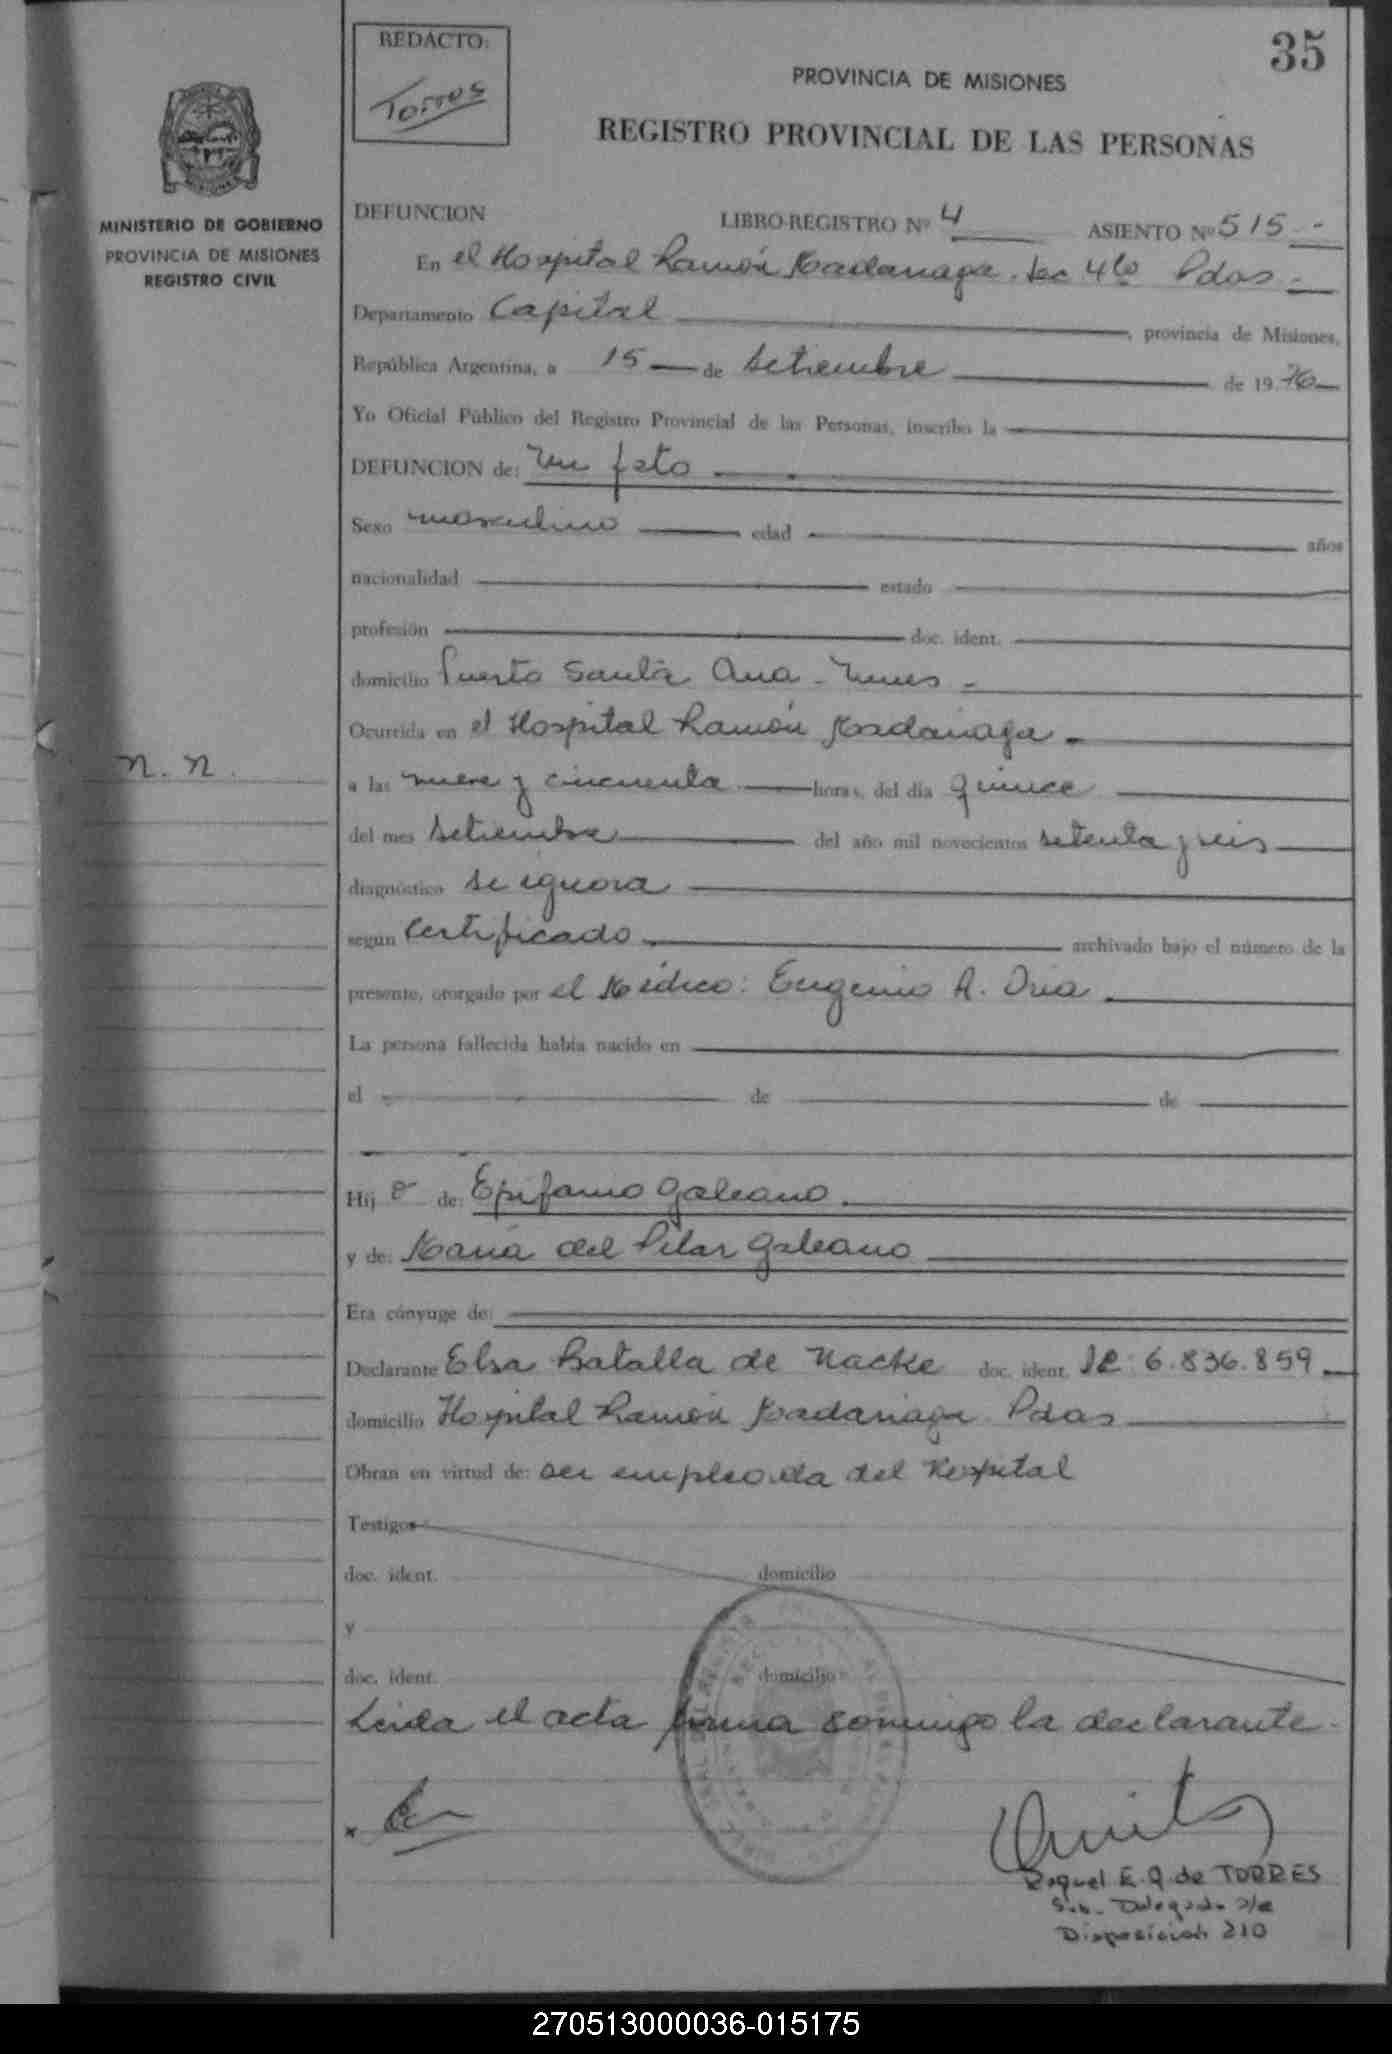 35
REDACTO:
Torres
PROVINCIA DE MISIONES
REGISTRO PROVINCIAL DE LAS PERSONAS
MINISTERIO DE GOBIERNO
PROVINCIA DE MISIONES
REGISTRO CIVIL
DEFUNCION LIBRO-REGISTRO Nº 4 ASIENTO Nº 515 --
En el Hospital Ramón Madariaga. Sec 4ta Pdas -
Departamento Capital, provincia de Misiones,
República Argentina, a 15 de Setiembre de 19 76
Yo Oficial Público del Registro Provincial de las Personas, inscribo la
DEFUNCION de: Un feto
Sexo masculino edad años
nacionalidad estado
profesión doc. ident.
domicilio Puerto Santa Ana -
Ocurrida en el Hospital Ramón Madariaga -
n. n.
a las nueve y cincuenta horas, del día quince
del mes setiembre del año mil novecientos setenta y seis
diagnóstico se ignora
según Certificado archivado bajo el número de la
presente, otorgado por el Médico: Eugenio A.
La persona fallecida había nacido en
el de de
Hij o de: Epifanio Galeano
y de: María del Pilar Galeano
Era cónyuge de:
Declarante Elsa Batalla de Nacke doc. ident. 6.836.859
domicilio Hospital Ramón Madariaga Pdas
Obran en virtud de: ser empleada del Hospital
Testigos
doc. ident. domicilio
y
doc. ident. domicilio
Leída el acta firma conmigo la declarante -
Raquel E. Q. de TORRES
Sub. Delegada a/c
Disposición 210
270513000036-015175